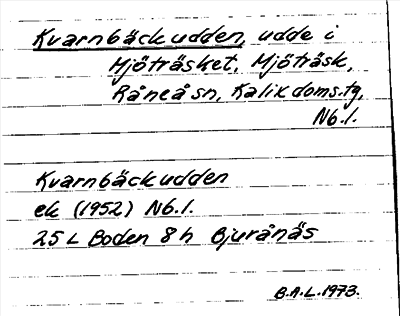 Kvarnbäckudden, udde i
Mjöträsket, Mjöträsk,
Råneå sn, Kalix doms.tg,
Nb.l.
Kvarnbäckudden
ek (1952) Nb.l.
25 L Boden 8 h Bjurånäs
B.A.L. 1973.